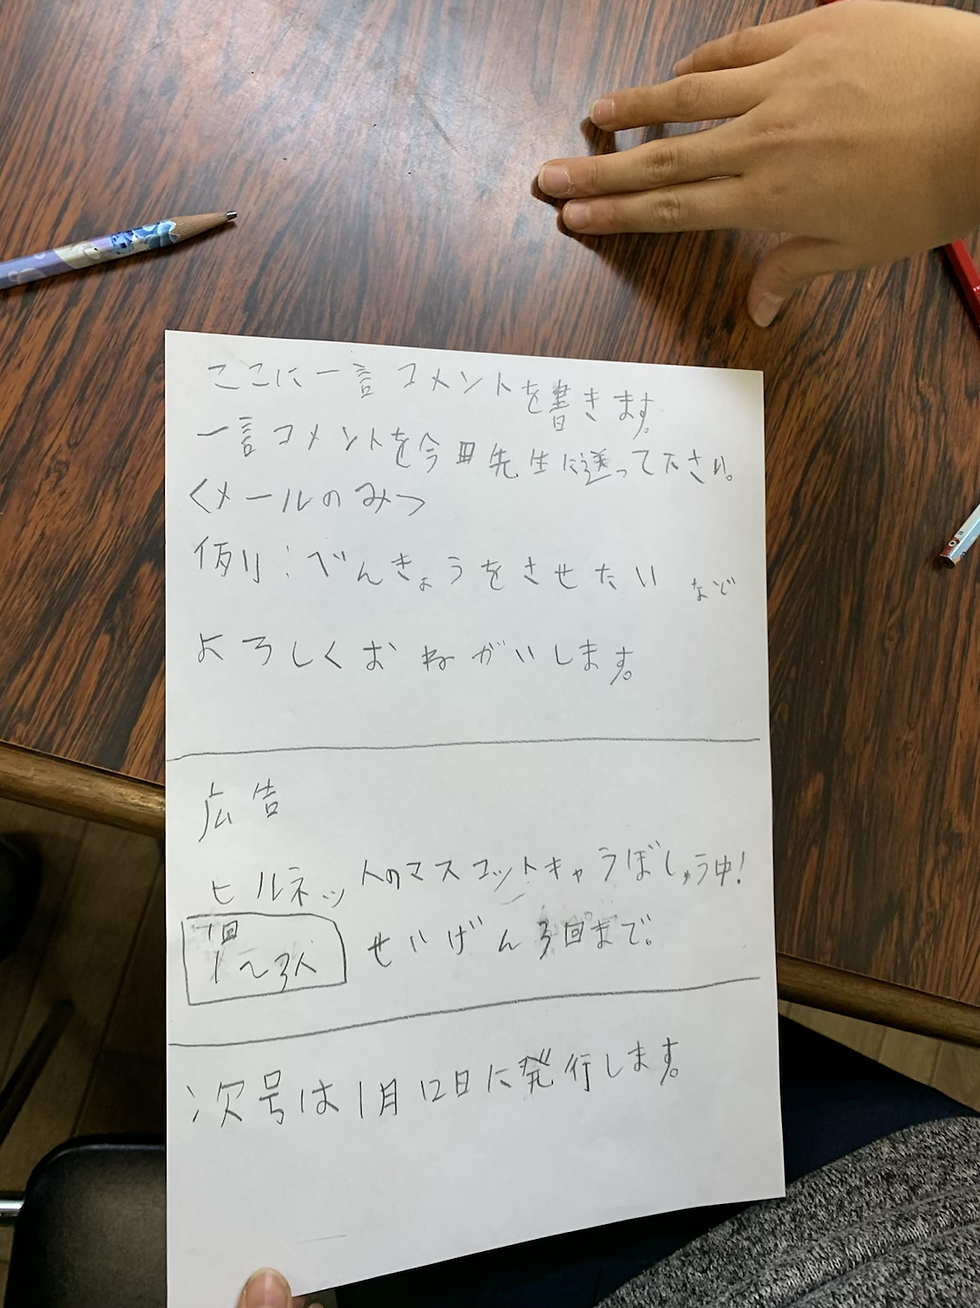 ここに一言コメントを書きます。
一言コメントを今田先生に送って下さい。
<メールのみ>
例:べんきょうをさせたい など
よろしくおねがいします。
広告
ヒルネッ人のマスコットキャラぼしゅう中!
1回
1〜3人
せいげん3回まで。
次号は1月12日に発行します。